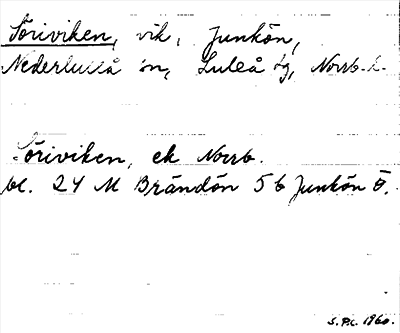 Söriviken, vik, Junkön,
Nederluleå sn, Luleå tg, Norrb. l.
Söriviken, ek Norrb.
bl. 24 M Brändön 5 b Junkön Ö.
S.P.C. 1960.